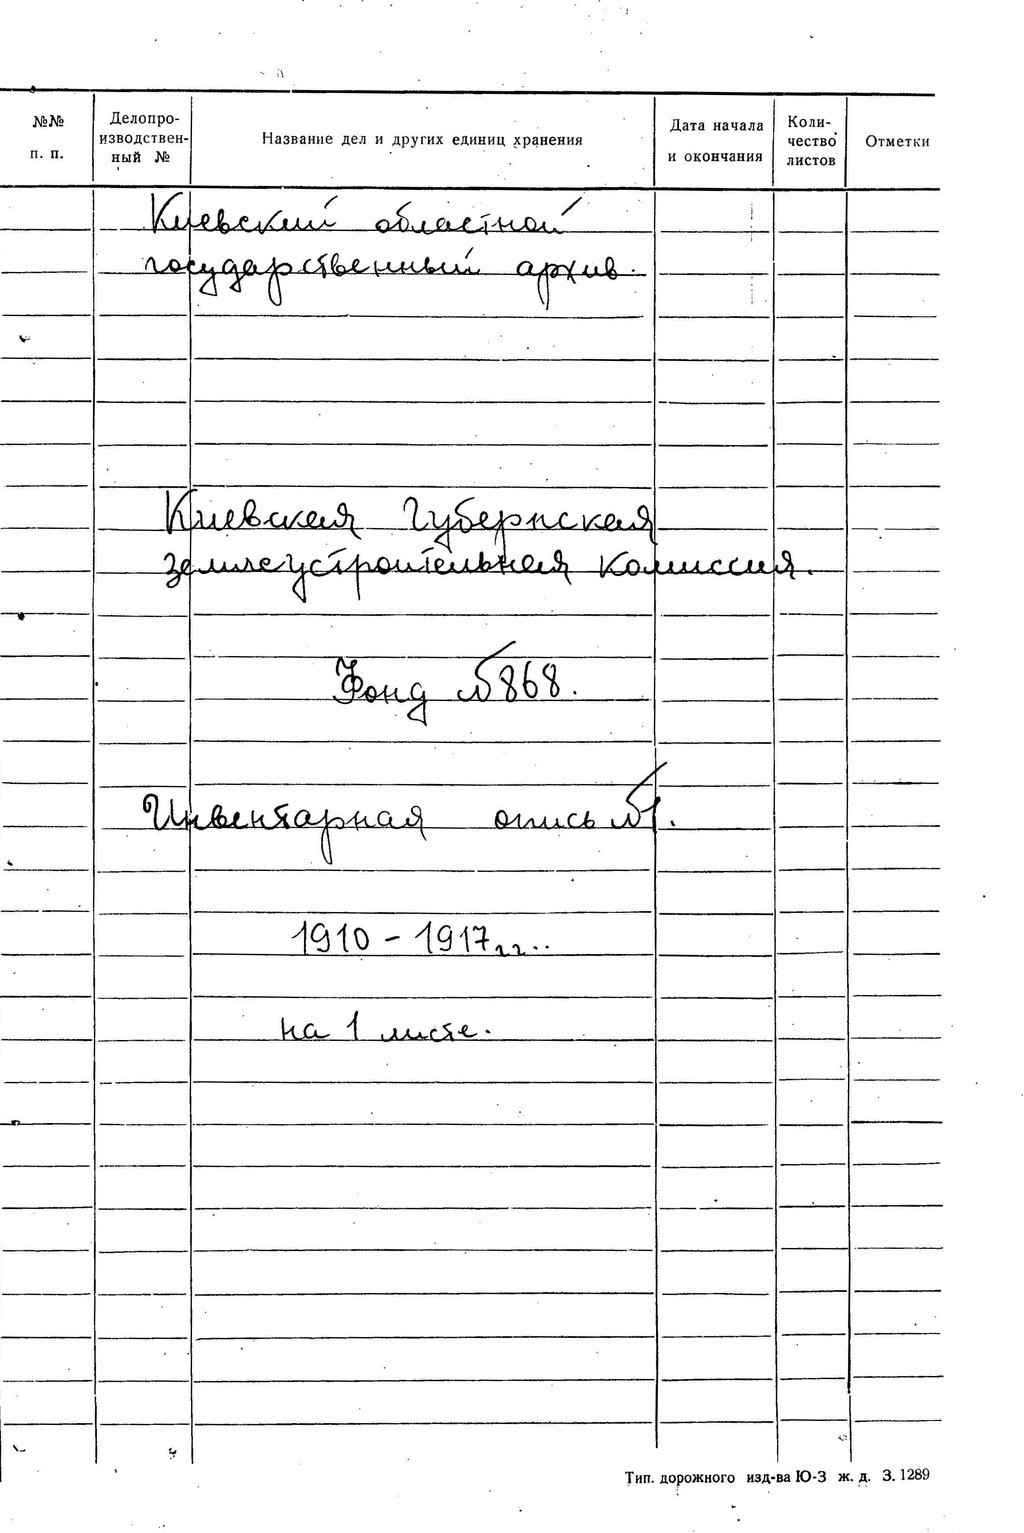 №№ п. п.
Делопро-
изводствен-
ный №
Название дел и других единиц хранения
Дата начала
и окончания
Коли-
чество
листов
Отметки
Киевский областной
государственный архив.
Киевская Губернская
землеустроительная Комиссия.
Фонд №868.
Инвентарная опись №1.
1910 - 1917 г.г..
на 1 листе.
Тип. дорожного изд-ва Ю-З ж. д. З. 1289